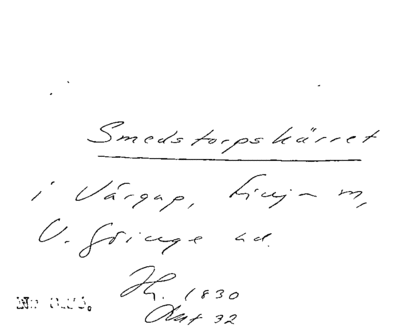 Smedstorpskärret
i Vårgap, Linja m,
V. Göinge hd.
1830
32